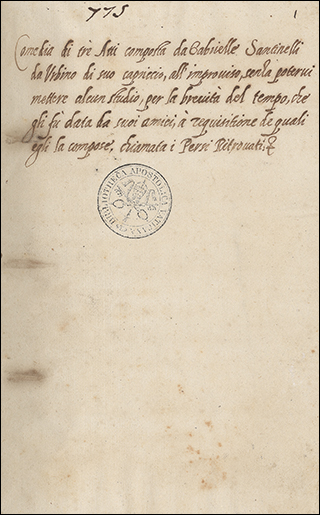 775
1
Comedia di tre Atti composta da Gabrielle Santinelli
da Urbino di suo capriccio, all'improviso, senza potervi
mettere alcun studio, per la brevità del tempo, che
gli fù data da suoi amici, a requisitione de quali
egli la compose, chiamata i Persi Ritrovati.
BIBLIOTHECA APOSTOLICA VATICANA